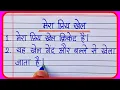 मेरा प्रिय खेल
1. मेरा प्रिय खेल क्रिकेट है।
2. यह खेल गेंद और बल्ले से खेला
जाता है।